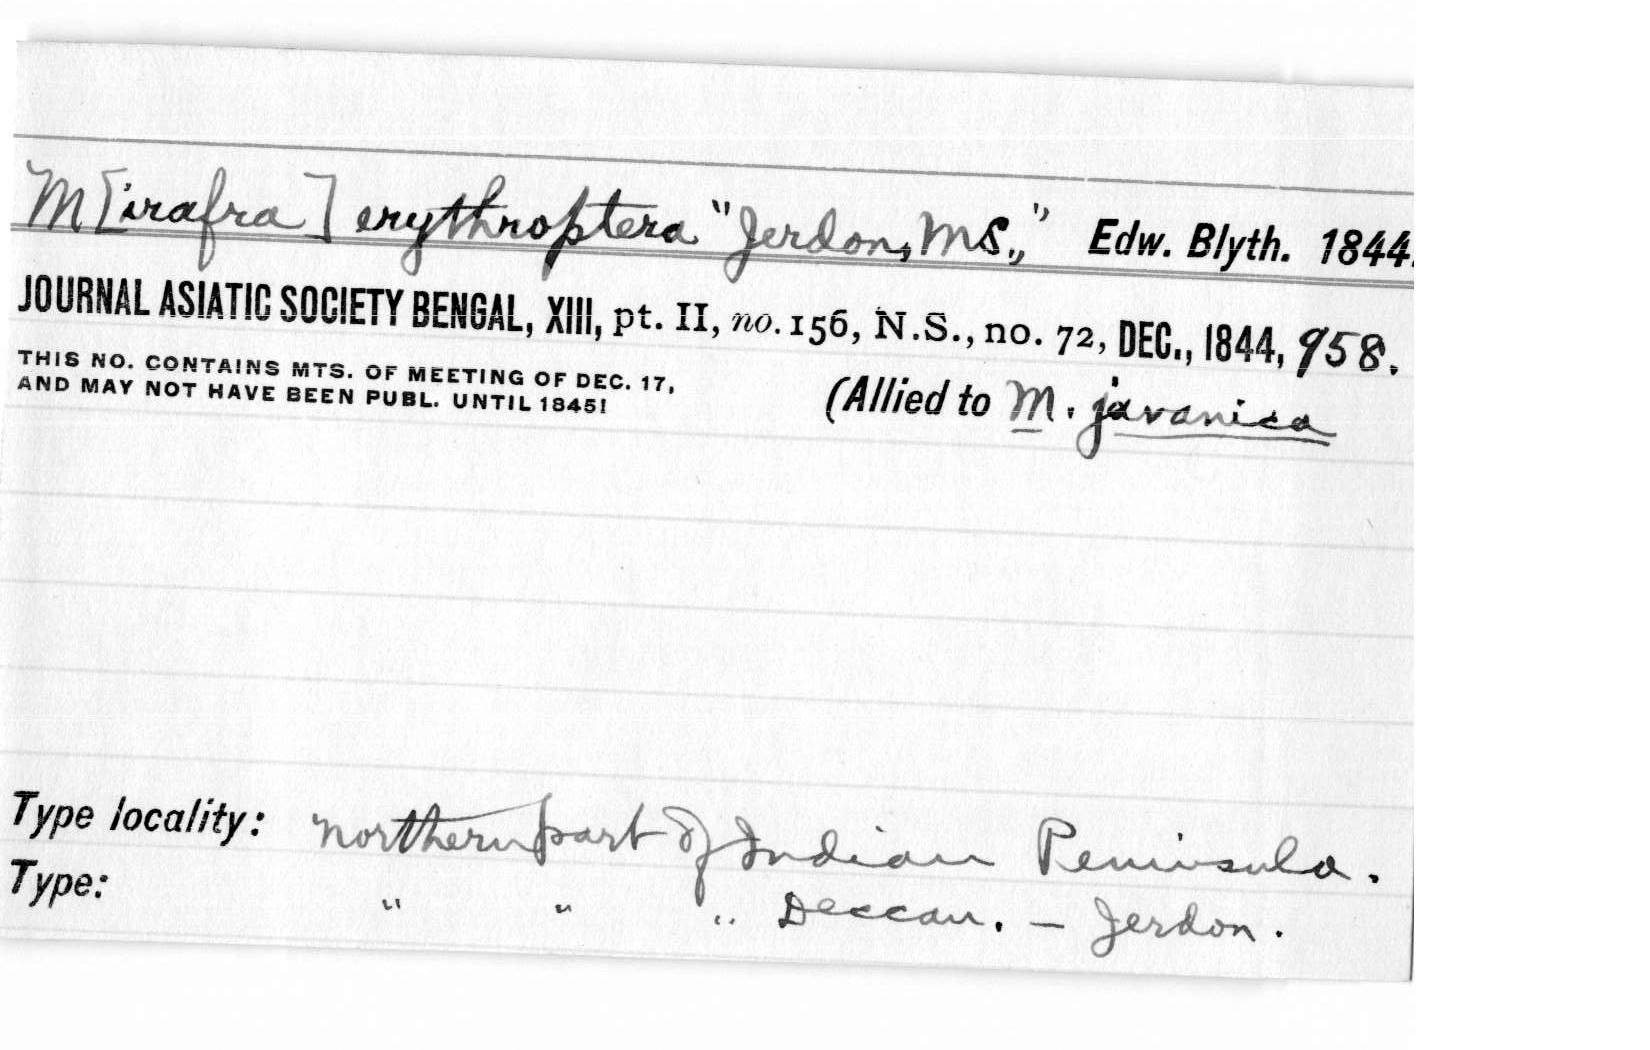 M[irafra] erythroptera "Jerdon, MS.," Edw. Blyth. 1844.
JOURNAL ASIATIC SOCIETY BENGAL, XIII, pt. II, no. 156, N.S., no. 72, DEC., 1844, 958.
THIS NO. CONTAINS MTS. OF MEETING OF DEC. 17,
AND MAY NOT HAVE BEEN PUBL. UNTIL 1845!
(Allied to M. javanica
Type locality: Northern part of Indian Peninsula.
Type: " " " Deccan. – Jerdon.